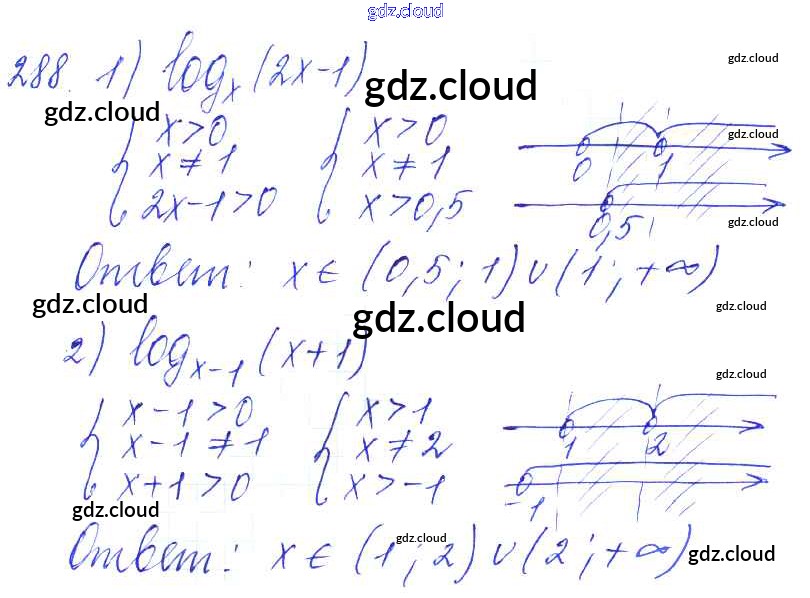 gdz.cloud
288. 1) log_x (2x-1)
gdz.cloud
gdz.cloud
gdz.cloud
{ x>0 { x>0
x≠1 x≠1 0 1 gdz.cloud
2x-1>0 x>0,5 0,5 gdz.cloud
Ответ: x∈(0,5; 1)∪(1; +∞)
gdz.cloud
gdz.cloud
gdz.cloud
2) log_{x-1} (x+1)
gdz.cloud
{ x-1>0 { x>1
x-1≠1 x≠2 1 2
x+1>0 x>-1 -1
gdz.cloud
Ответ: x∈(1; 2)∪(2; +∞)
gdz.cloud
gdz.cloud